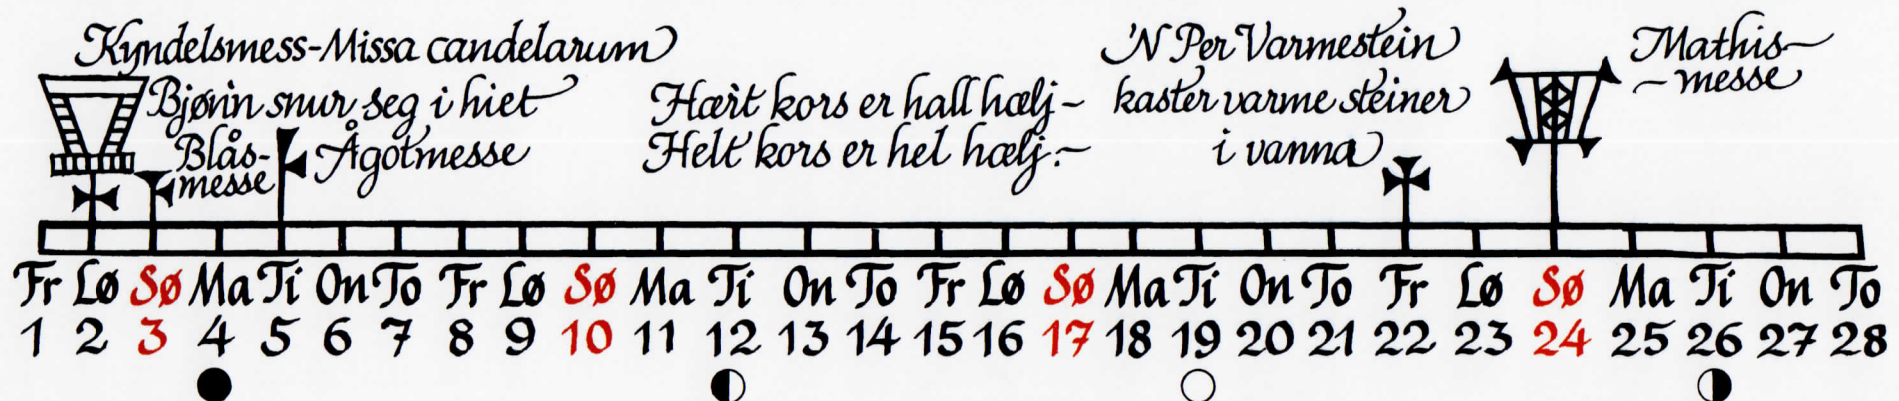 Kyndelsmess-Missa candelarum
Bjønn snur seg i hiet
Blås-
messe
Ågotmesse
Hært kors er hall hælj-
Helt kors er hel hælj:-
'N Per Varmestein
kaster varme steiner
i vanna
Mathis-
-messe
Fr Lø Sø Ma Ti On To Fr Lø Sø Ma Ti On To Fr Lø Sø Ma Ti On To Fr Lø Sø Ma Ti On To
1 2 3 4 5 6 7 8 9 10 11 12 13 14 15 16 17 18 19 20 21 22 23 24 25 26 27 28